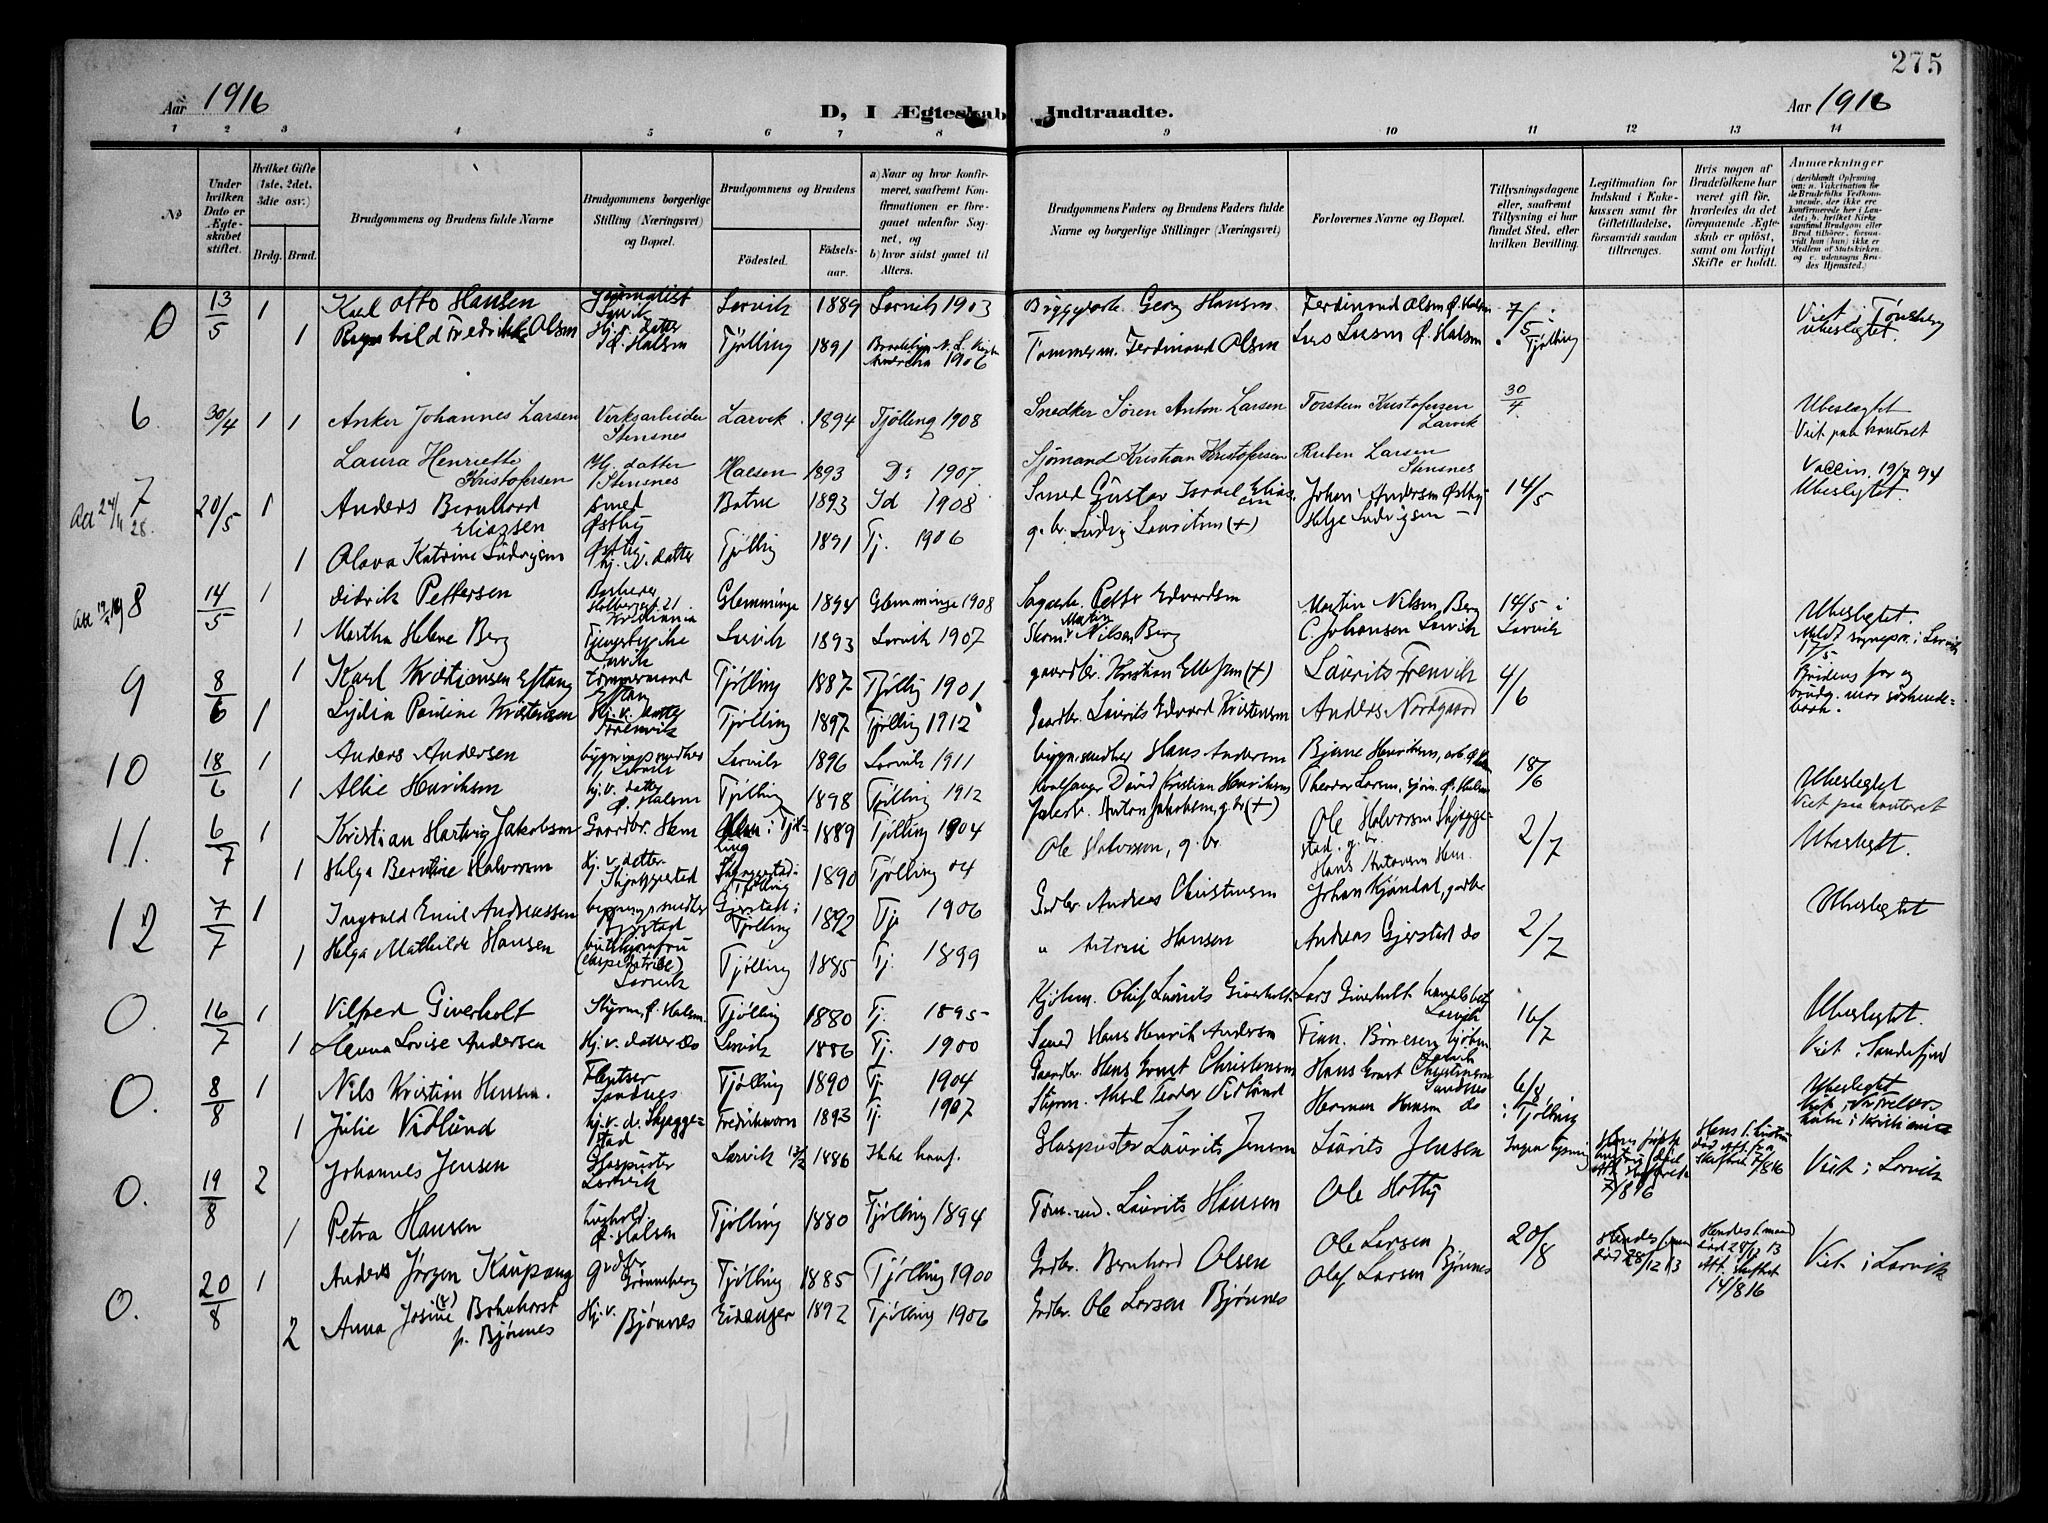 275
Aar 1916
D, I Ægteskab Indtraadte.
Aar 1916
1 2 3 4 5 6 7 8 9 10 11 12 13 14
No
Under hvilken Dato er Ægteskabet stiftet.
Hvilket Gifte (1ste, 2det, 3die osv.)
Brdg. Brud.
Brudgommens og Brudens fulde Navne
Brudgommens borgerlige Stilling (Næringsvei) og Bopæl.
Brudgommens og Brudens
Fødested.
Fødselsaar.
a) Naar og hvor konfirmeret, saafremt Konfirmationen er foregaaet udenfor Sognet, og
b) hvor sidst gaaet til Alters.
Brudgommens Faders og Brudens Faders fulde Navne og borgerlige Stillinger (Næringsvei)
Forlovernes Navne og Bopæl.
Tillysningsdagene eller, saafremt Tillysning ei har fundet Sted, efter hvilken Bevilling.
Legitimation for Indskud i Enkekassen samt for Giftetilladelse, forsaavidt saadan tiltrænges.
Hvis nogen af Brudefolkene har været gift før, hvorledes da det foregaaende Ægteskab er opløst, samt om lovligt Skifte er holdt.
Anmærkninger (deriblandt Oplysning om: a. Vakcination for de Brudefolks Vedkommende, der ikke ere konfirmerede her i Landet; b. hvilket Kirkesamfund Brudgom eller Brud tilhører, forsaavidt han (hun) ikke er Medlem af Statskirken, og c. udensogns Brudes Hjemsted.)
0 13/5 1 Karl Otto Hansen Journalist Larvik Larvik 1889 Larvik 1903 Georg Hansen Ferdinand Olsen Ø. Halsen 7/5 i Tjølling Viet i Tønsberg
1 Ragnhild Fredrikke Olsen Hj. v. datter Ø. Halsen Tjølling 1891 1906 Tømmerm. Ferdinand Olsen Lars Larsen Ø. Halsen ubeslegtet.
6. 30/4 1 1 Anker Johannes Larsen Verksarbeider Stensnes Larvik 1894 Tjølling 1908 Snedker Søren Anton Larsen Torstein Kristofersen Larvik 30/4 Ubeslægtet
Viet paa kontoret
Laura Henriette Kristofersen Hj. datter Stensnes Halsen 1893 Do 1907 Sjømand Kristian Kristofersen Ruben Larsen Stensnes Vaccin. 19/7 94
7 20/5 1 Anders Bernhard Eliassen Smed Østby Botne 1893 Id 1908 Smed Gustav Israel Eliassen Johan Andersen Østby 14/5 Ubeslegtet
1 Olava Katrine Ludvigsen Østby hj. v. datter Tjølling 1891 Tj. 1906 g. br. Ludvig Lauritsen (+) Helge Ludvigsen
8 14/5 1 Didrik Pettersen Holbergsgt. 21 Kristiania Glemminge 1894 Glemminge 1908 Petter Edvardsen Martin Nilsen Berg 14/5 i Larvik Ubeslegtet.
1 Martha Helene Berg Larvik Larvik 1893 Larvik 1907 Skom. Martin Nilsen Berg C. Johansen Larvik Meldt sognepr. i Larvik 17/5
9 8/6 1 Karl Kristiansen Eftang Tømmermand Eftang Tjølling 1887 Tjølling 1901 gaardbr. Kristian Ellefsen (+) Laurits Trenvik 4/6 Brudens far og brudg. mor søskendebarn.
1 Lydia Pauline Kristensen Hj. v. datter Tjølling 1897 Tjølling 1912 Gaardbr. Laurits Edvard Kristensen Anders Nordgaard
10 18/6 1 Anders Andersen bygningssnedker Larvik Larvik 1896 Larvik 1911 bygn. snedker Hans Andersen Bjarne Henriksen, 18/6 Ubeslegtet
1 Albie Henriksen hj. v. datter Ø. Halsen Tjølling 1898 Tjølling 1912 Hvalfanger David Kristian Henriksen Theodor Larsen, sjøm. Ø. Halsen Viet paa kontoret
11. 6/7 1 Kristian Hartvig Jakobsen Gaardbr. Hem Hem i Tjølling 1889 Tjølling 1904 Jakob Anton Jakobsen, g. br. (+) Ole Halvorsen Skjeggestad. g. br. 2/7 Ubeslegtet.
1 Helga Berntine Halvorsen Hj. v. datter Skjeggestad Skjeggestad Tjølling 1890 Tjølling 04 Ole Halvorsen, g. br. Hans Antonsen Hem.
12 7/7 1 Ingvald Emil Andreassen bygningssnedker Gjerstad Gjerstad i Tjølling 1892 Tj. 1906 Grdbr. Andreas Christensen Johan Kjøndal, gardbr 2/7 Ubeslegtet
1 Helga Mathilde Hansen Larvik Tjølling 1885 Tj. 1899 " Antoni Hansen Andreas Gjerstad do
0. 16/7 1 Vilfred Giverholt Styrm. Ø. Halsen. Tjølling 1880 Tj. 1895 Kjøbm. Oluf Laurits Giverholt Lars Giverholt handelsbet. Larvik 16/7 Ubeslegtet.
1 Hanna Lovise Andersen Hj. v. datter do Larvik 1886 Tj. 1900 Smed Hans Henrik Andersen Finn Børresen kjøbm Larvik Viet i Sandefjord
0. 8/8 1 Nils Kristian Hansen. Tjølling 1890 Tj. 1904 Gaardbr. Hans Ernst Christensen Hans Ernst Christensen 6/8 i Tjølling Ubeslegtet
1 Julie Vidlund hj. v. d. Skjeggestad Fredriksværn 1893 Tj. 1907 Styrm. Axel Teodor Vidlund Herman Hansen do
0. 19/8 2 Johannes Jensen Glaspuster Larvik Larvik 13/2 1886 Ikke konf. Glaspuster Laurits Jensen Laurits Jensen Ingen lysning 7/8 16 Hans f. hustru død att. fra skifteret 7/8 16 Viet i Larvik
1 Petra Hansen hushold. Ø. Halsen Tjølling 1880 Tjølling 1894 Tøm.md. Laurits Hansen Ole Holtz
0. 20/8 1 Anders Jørgen Kaupang Grønneberg Tjølling 1885 Tjølling 1900 Grdbr. Bernhard Olsen Ole Larsen Bjønnes 20/8 Hendes f. mand død 28/12 13 Hendes f. mand død 28/12 13 Att. skiftet 14/8 16 Viet i Larvik
2 Anna Josine Bohnhorst f. Bjønnes Hj. v. Bjønnes Eidanger 1892 Tjølling 1906 Grdbr. Ole Larsen Bjønnes Olaf Larsen